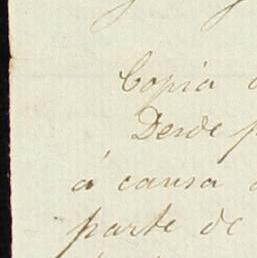 Copia
Desde
á causa
parte de